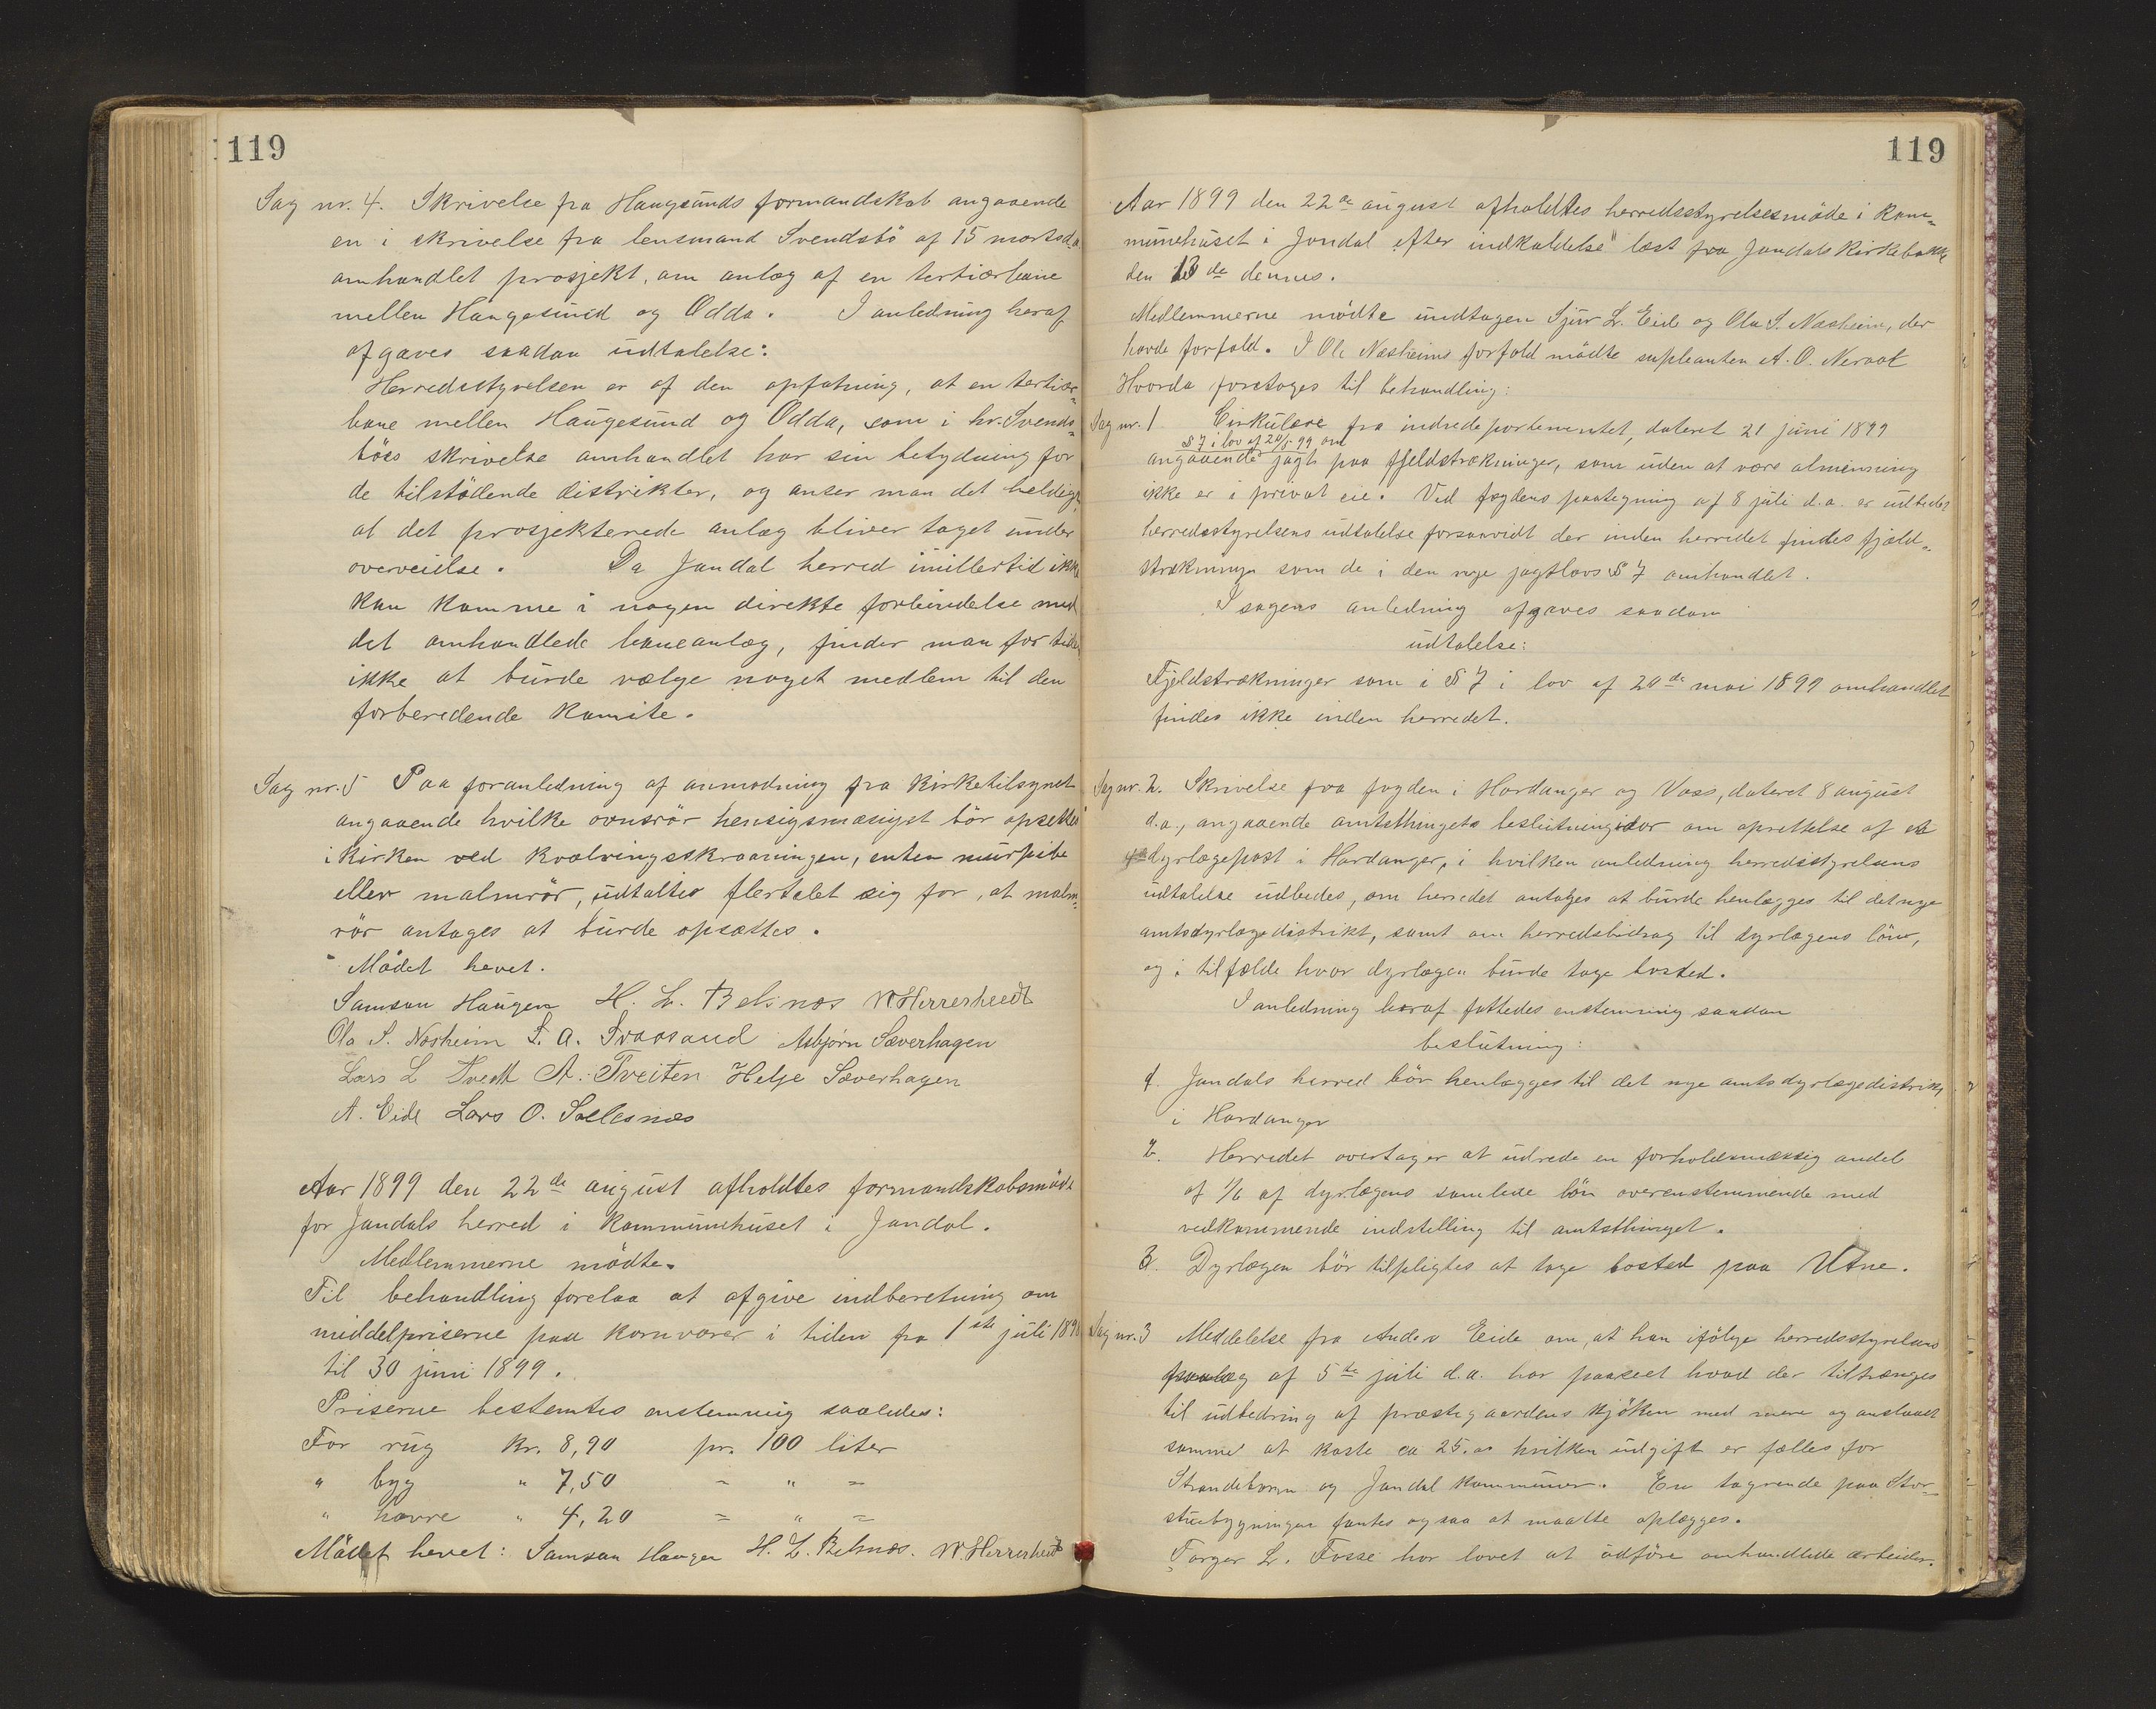 119
Sag nr. 4. Skrivelse fra Haugsunds formandskab angaaende
en i skrivelse fra lensmand Svendsbö af 15 marts d.a.
omhandlet prosjekt, om anlæg af en tertiærbane
mellen Haugesund og Odda. I anledning heraf
afgaves saadan udtalelse:
Herredsstyrelsen er af den opfatning, at en tertiær-
bane mellen Haugesund og Odda, som i hr. Svends-
böes skrivelse omhandlet har sin betydning for
de tilstödende distrikter, og anser man det heldigt,
at det prosjekterede anlæg bliver taget under
overveielse. Da Jondal herred imillertid ikke
kan komme i nogen direkte forbindelse med
det omhandlede baneanlæg, finder man for tiden
ikke at burde vælge noget medlem til den
forberedende komite.
Sag nr. 5 Paa foranledning af anmodning fra kirketilsynet
angaaende hvilke ovnsrör hensigsmæsigst bör opsettes
i kirken ved kvælvingsskraaningen, enten murpibe
eller malmrör, udtaltes flertalet sig for, at malm-
rör antages at burde opsættes.
Mödet hevet.
Samson Haugen H. L. Belsnæs W Herrerheedt
Ola S. Næsheim S. A. Svaasand Asbjørn Sæverhagen
Lars L Tvedt A. Tveiten Helje Sæverhagen
A. Eide Lars O. Sollesnæs
Aar 1899 den 22de august afholdtes formandskabsmöde
for Jondals herred i kommunehuset i Jondal.
Medlemmerne mödte.
Til behandling forelaa at afgive indberetning om
middelpriserne paa kornvarer i tiden fra 1ste juli 1898
til 30 juni 1899.
Priserne bestemtes enstemmig saaledes:
For rug kr. 8,90 pr. 100 liter
" byg " 7,50 - " -
" havre " 4,20 - " -
Mödet hevet: Samson Haugen H. L. Belsnæs. W. Herrerheedt
119
Aar 1899 den 22de august afholdtes herredsstyrelsesmöde i kom-
munehuset i Jondal efter indkaldelse læst fra Jondals kirkebakke
den 13de dennes.
Medlemmerne mödte undtagen Sjur L. Eide og Ola S. Næsheim, der
havde forfald. I Ole Næsheims forfald mödte supleanten A. O. Neraal
Hvorda foretages til behandling:
Sag nr. 1 Cirkulære fra indredepartementet, dateret 21 juni 1899
§ 7 i lov af 20/5 99 om
angaaende jagt paa fjeldstrækninger, som uden at være alminning
ikke er i privat eie. Ved fogdens paategning af 8 juli d.a. er udbedet
herredsstyrelsens udtalelse forsaavidt der inden herredet findes fjæld-
strækninger som de i den nye jagtlovs § 7 omhandlet.
I sagens anledning afgaves saadan
udtalelse:
Fjeldstrækninger som i § 7 i lov af 20de mai 1899 omhandlet
findes ikke inden herredet.
Sag nr. 2. Skrivelse fra fogden i Hardanger og Voss, dateret 8 august
d.a., angaaende amtsthingets beslutning om oprettelse af
dyrlægepost i Hardanger, i hvilken anledning herredsstyrelsens
udtalelse udbedes, om herredet antages at burde henlægges til det nye
amtsdyrlægedistrikt, samt om herredsbidrag til dyrlægens lön,
og i tilfælde hvor dyrlægen burde tage bosted.
I anledning heraf fattedes enstemmig saadan
beslutning:
1. Jondals herred bör henlægges til det nye amtsdyrlægedistrikt
i Hardanger
2. Herredet overtager at udrede en forholdsmæssig andel
af 1/6 af dyrlægens samlede lön overenstemmende med
vedkommende indstilling til amtsthinget.
3. Dyrlægen bör tilpligtes at tage bosted paa Utne.
Sag nr. 3 Meddelelse fra Anders Eide om, at han ifölge herredsstyrelsens
af 5te juli d.a. har paaseet hvad der tiltrænges
til udbedring af præstegaardens kjöken med mere og anslaaet
samme at koste ca 25.00 hvilken udgift er fælles for
Strandebarm og Jondal kommuner. En tagrende paa Stor-
stuebygningen fantes ogsaa at maatte oplægges.
Torger L. Fosse har lovet at udföre omhandlede arbeider.